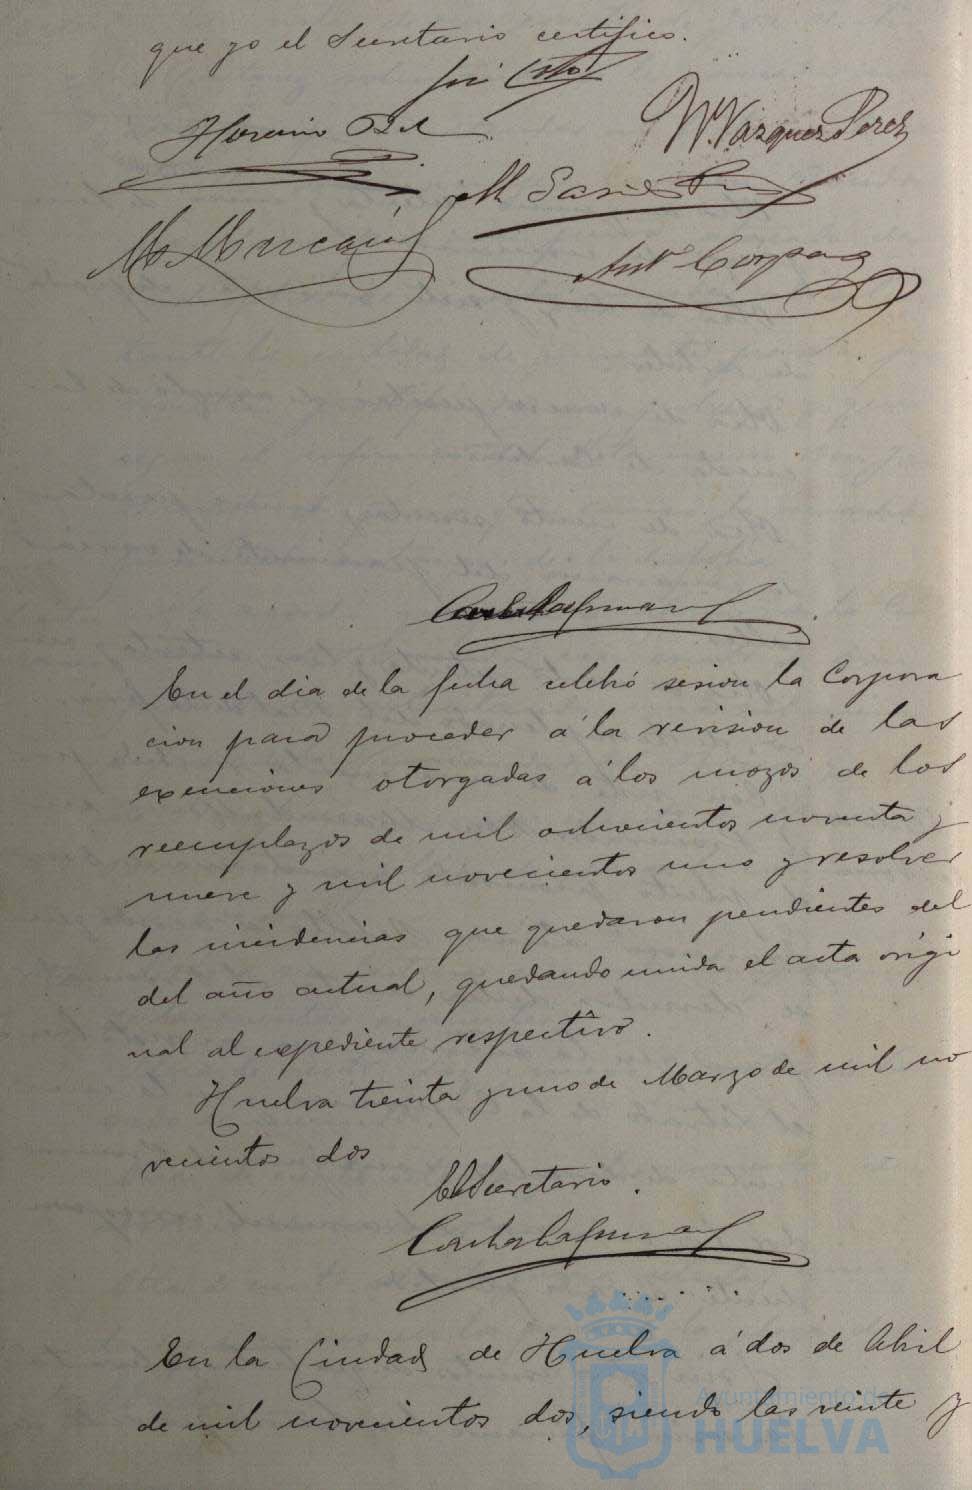 que yo el Secretario certifico.
M. Vazquez Perez
Ant.º Corpas
En el dia de la fecha celebró sesion la Corpora
cion para proceder á la revision de las
exenciones otorgadas á los mozos de los
reemplazos de mil ochocientos noventa y
nueve y mil novecientos uno y resolver
las incidencias que quedaron pendientes del
del año actual, quedando unida el acta origi
nal al expediente respectivo.
Huelva treinta y uno de Marzo de mil no
vecientos dos
El Secretario.
En la Ciudad de Huelva á dos de Abril
de mil novecientos dos, siendo las veinte y
Ayuntamiento de
HUELVA